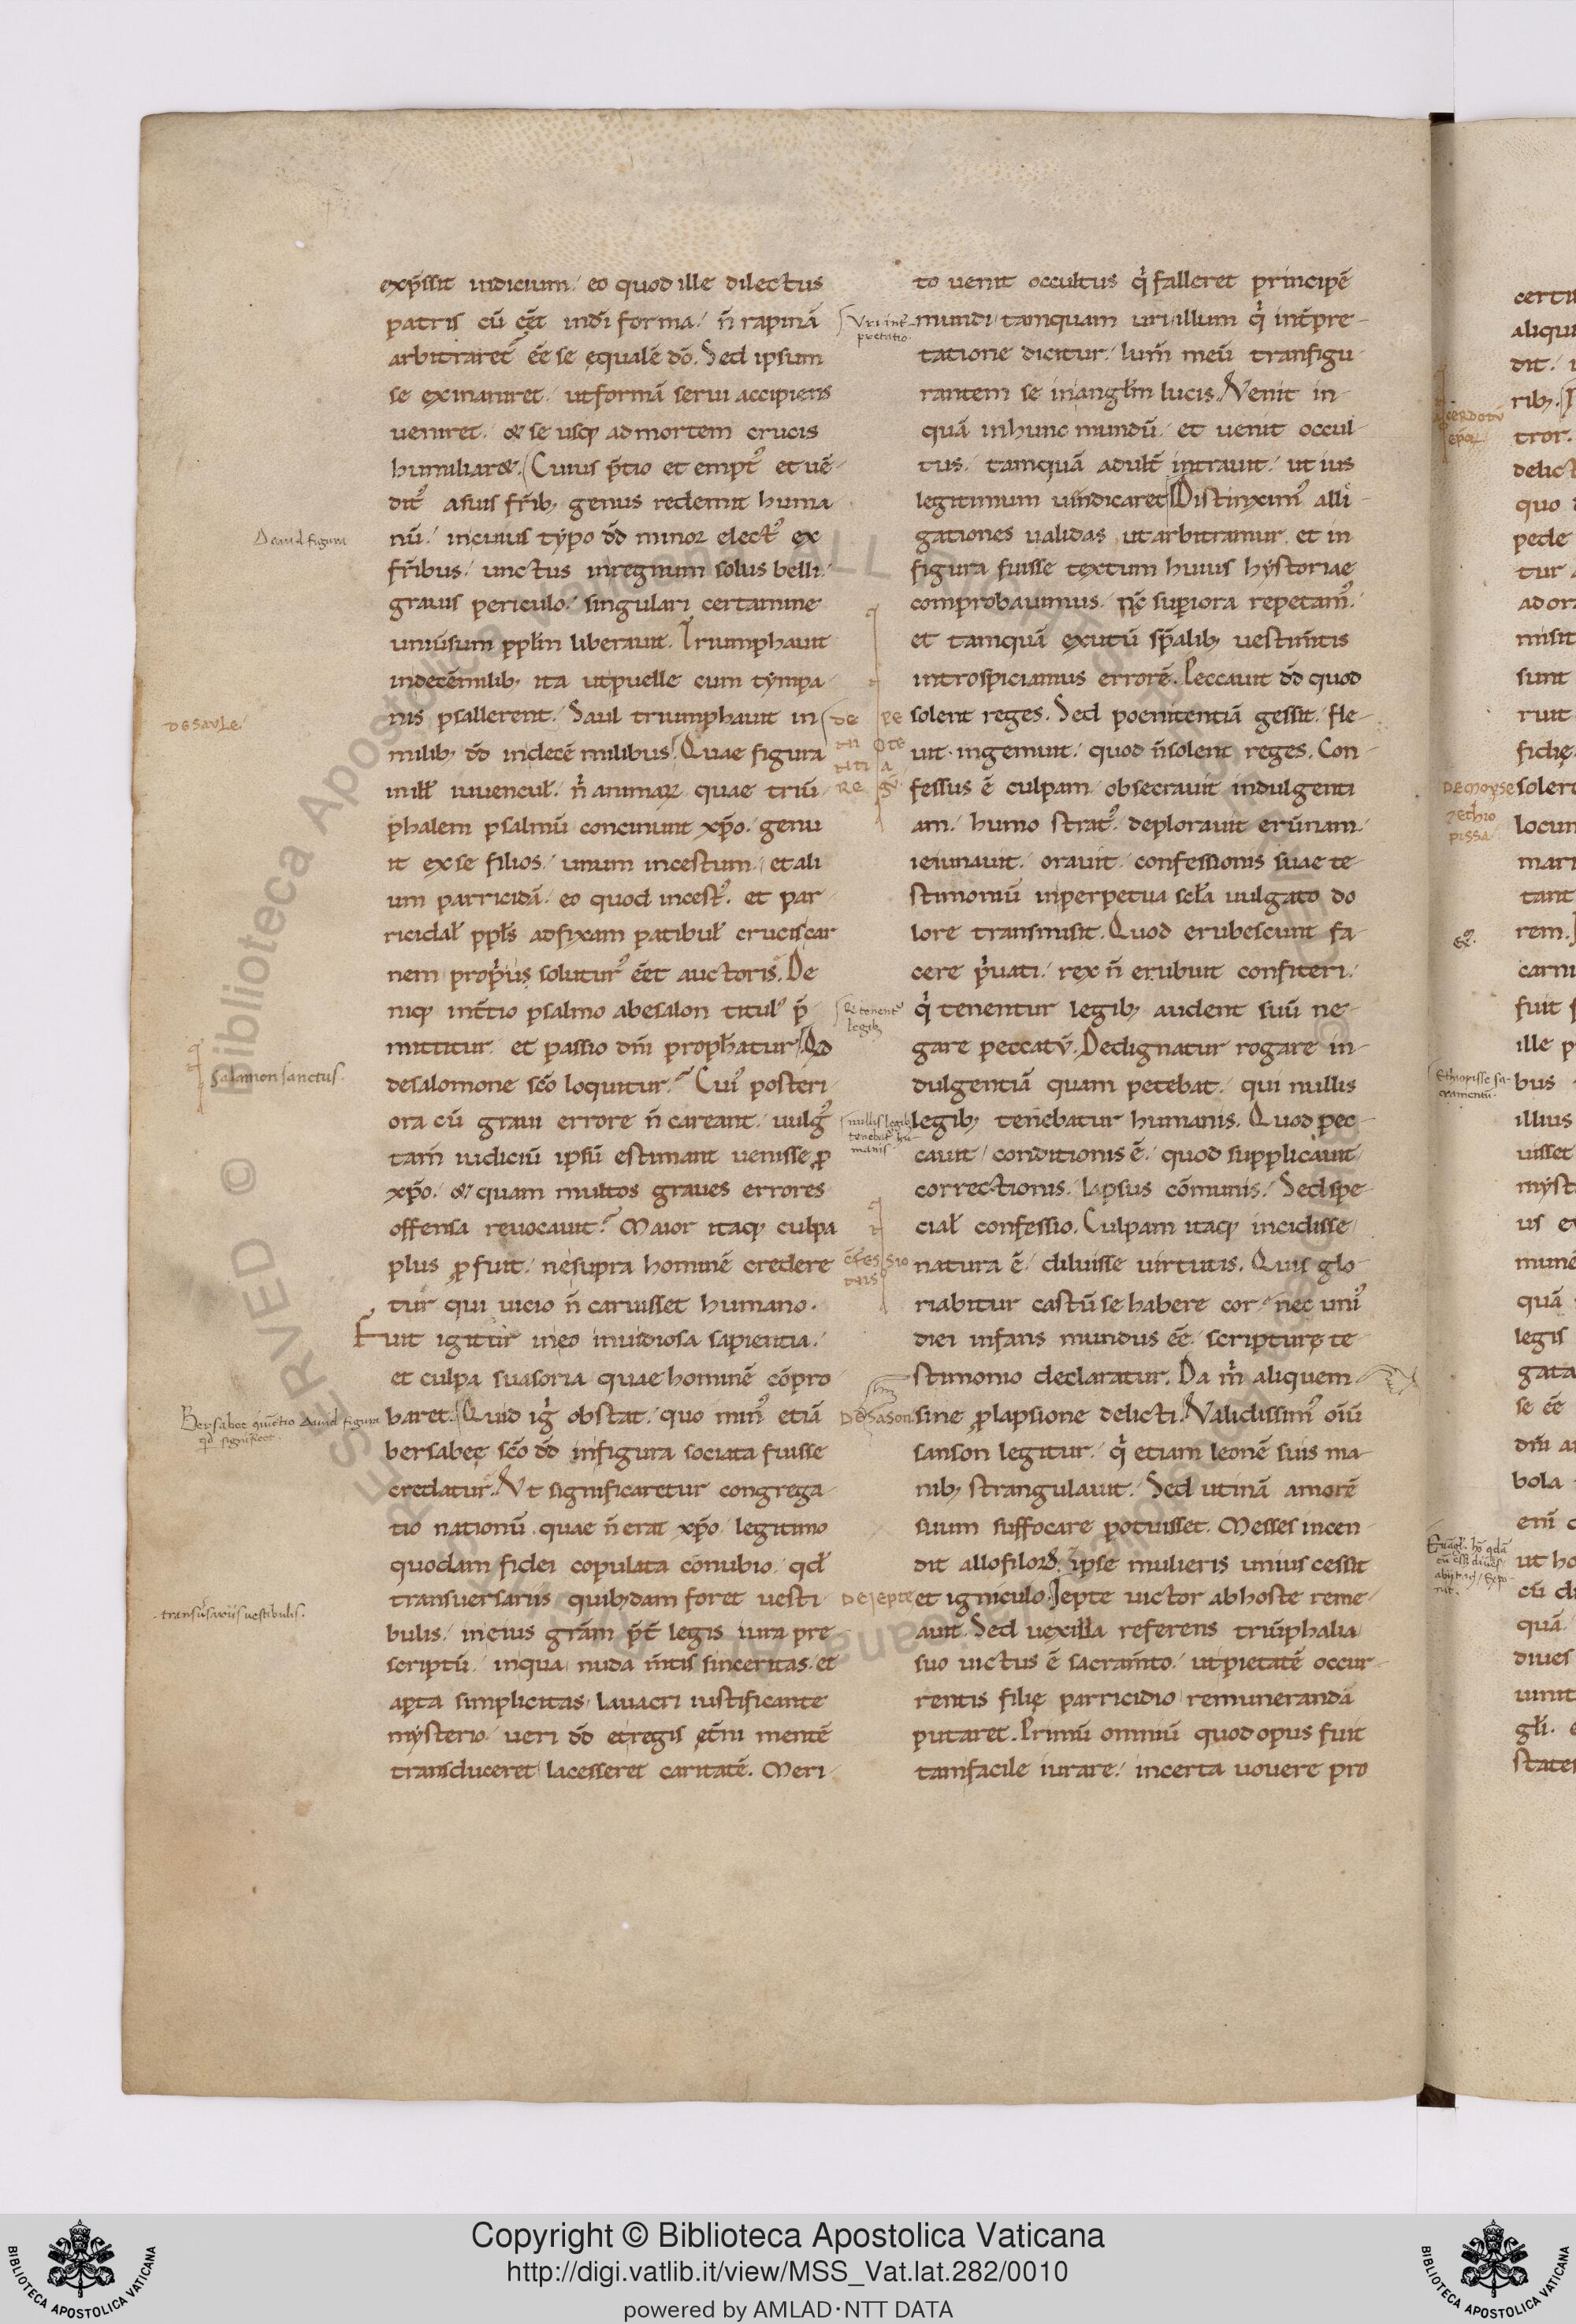 exp̄ssit indicium. eo quod ille dilectus
patris cū eēt in dī forma. n̄ rapinā
arbitraret᷑ eē se equalē dō. Sed ipsum
se exinaniret. ut formā serui accipiens
ueniret. & se usq; ad mortem crucis
humiliar&. Cuius p̄tio et empt᷒ et uē
dit᷒ a suis fr̄ib; genus redemit huma
Dauid figura
nū. in cuius typo dd̄ minor elect᷒ ex
fr̄ibus. unctus in regnum solus belli
grauis periculo. singulari certamine
uniūsum ppl̄m liberauit. Triumphauit
in decē milib; ita ut puellę cum tympa
De saule.
nis psallerent. Saul triumphauit in
milib; dd̄ in decē milibus. Quae figura
mill̄ iuuencul̄. n̄ animarꝝ quae triū
phalem psalmū concinunt xp̄o. genu
it ex se filios. unum incestum. et ali
um parricidā. eo quod incest᷒. et par
ricidal̄ ppl̄s adfixam patibul̄ crucis car
nem proprius soluturus eēt auctoris. De
niq; int̄tio psalmo abesalon titul᷒ p̄
mittitur. et passio dn̄i proph̄atur. Qd
Salamon sanctus.
de salomone sc̄o loquitur? Cui᷒ posteri
ora cū graui errore n̄ careant. uulg᷒
tam̄ iudiciū ipsū estimant uenisse ꝓ
xp̄o. & quam multos graues errores
offensa reuocauit? Maior itaq; culpa
plus ꝓfuit. ne supra hominē credere
tur qui uicio n̄ caruisset humano.
Fuit igitur in eo inuidiosa sapientia.
et culpa suasoria quae hominē cōpro
baret. Quid igr̄ obstat. quo min᷒ etiā
bersabeę sc̄o dd̄ in figura sociata fuisse
credatur. Ut significaretur congrega
tio nationū quae n̄ erat xp̄o legitimo
quodam fidei copulata cōnubio. qd̄
transuersariis quib;dam foret uesti
.transūsariis uestibulis.
bulis. in eius grām p̄t̄ legis iura pre
scriptū. in qua nuda m̄tis sinceritas. et
apta simplicitas. lauacri iustificante
mysterio. ueri dd̄ et regis et̄ni mentē
transduceret lacesseret caritatē. Meri
to uenit occultus q̄ falleret principē
mundi tamquam uri illum q̄ int̄pre
tatione dicitur. lum̄ meū transfigu
rantem se in angl̄m lucis. Uenit in
quā in hunc mundū. et uenit occul
tus. tamquā adult̄ intrauit. ut ius
legitimum uindicaret. Distinxim᷒ alli
gationes ualidas ut arbitramur. et in
figura fuisse textum huius hystoriae
comprobauimus. nc̄ superiora repetam᷒.
et tamquā exutū sp̄alib; uestim̄tis
introspiciamus errorē. Peccauit dd̄ quod
solent reges. Sed poenitentiā gessit. fle
uit. ingemuit. quod n̄ solent reges. Con
fessus ē culpam. obsecrauit indulgenti
am. humo strat᷒. deplorauit erūnam.
ieiunauit. orauit. confessionis suae te
stimoniū in perpetua scl̄a uulgato do
lore transmisit. Quod erubescunt fa
cere p̄uati. rex n̄ erubuit confiteri.
q̄ tenentur legib; audent suū ne
gare peccatū. Dedignatur rogare in
dulgentiā quam petebat. qui nullis
legib; tenebatur humanis. Quod pec
cauit. conditionis ē. quod supplicauit
correctionis. lapsus cōmunis. Sed spe
cial̄ confessio. Culpam itaq; incidisse
natura ē. diluisse uirtutis. Quis glo
riabitur castū se habere cor. nec uni᷒
diei infans mundus eē. scripturę te
stimonio declaratur. Da m̄ aliquem
sine ꝓlapsione delicti. Ualidissim᷒ oīū
sanson legitur. q̄ etiam leonē suis ma
nib; strangulauit. Sed utinā amorē
suum suffocare potuisset. Messes incen
dit allofiloꝝ. ipse mulieris unius cessit
De Jepte
et igniculo. Jepte uictor ab hoste reme
auit. Sed uexilla referens triūphalia
suo uictus ē sacram̄to. ut pietatē occur
rentis filię parricidio remunerandā
putaret. Primū omniū quod opus fuit
tam facile iurare. incerta uouere pro
Copyright © Biblioteca Apostolica Vaticana
http://digi.vatlib.it/view/MSS_Vat.lat.282/0010
powered by AMLAD·NTT DATA
BIBLIOTECA APOSTOLICA VATICANA
BIBLIOTECA APOSTOLICA VATICANA